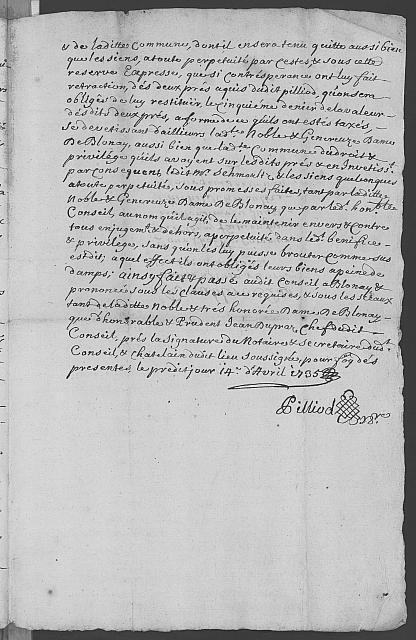 & de laditte Commune, dont il en sera tenu quitte aussi bien
que les siens, a toute perpetuité par cestes, & sous cette
reserve Expresse, que si contr'esperance on luy fait
retraction, dés deux prés aquis dudit pilliod, qu'on sera
obligés de luy restituer, le cinquiéme denier de la valeur
désdits deux prés, a forme de ce qu'ils ont estés taxés,
Se devetissant d'ailleurs lad.te Noble & Genereuse Dame
De Blonay, aussi bien que lad.te Commune du droit &
privilége qu'ils avoyent sur lesdits prés & en Investiss.t
par consequent, ledit Mr. Schmoult & les siens quelconques
a toute perpetuités, sous promesses faites, tant par laditte
Noble & Genereuse Dame De Blonay que par led.t hon.ble
Conseil, au nom qu'il agit, de le maintenir envers & contre
tous en jugem.t & dehors, a perpetuité, dans led.t benefice
& privilege, sans qu'on les luy puisse brouter comme sus
est dit; a quel effect ils ont obligés leurs biens a peine de
damps; ainsy fait & passé audit Conseil a Blonay &
prononcé sous les clauses a ce requises, & sous les sceaux
tant de laditte Noble & trés honorée Dame De Blonay
que d'honnorable & Prudent Jean Dupraz, Chef dudit
Conseil, prés la signature du Notaire & Secretaire dud.t
Conseil, & chatelain dudit lieu soussigné, pour foy dés
presentes, le predit jour 14.e d'Avril 1735
Pilliod